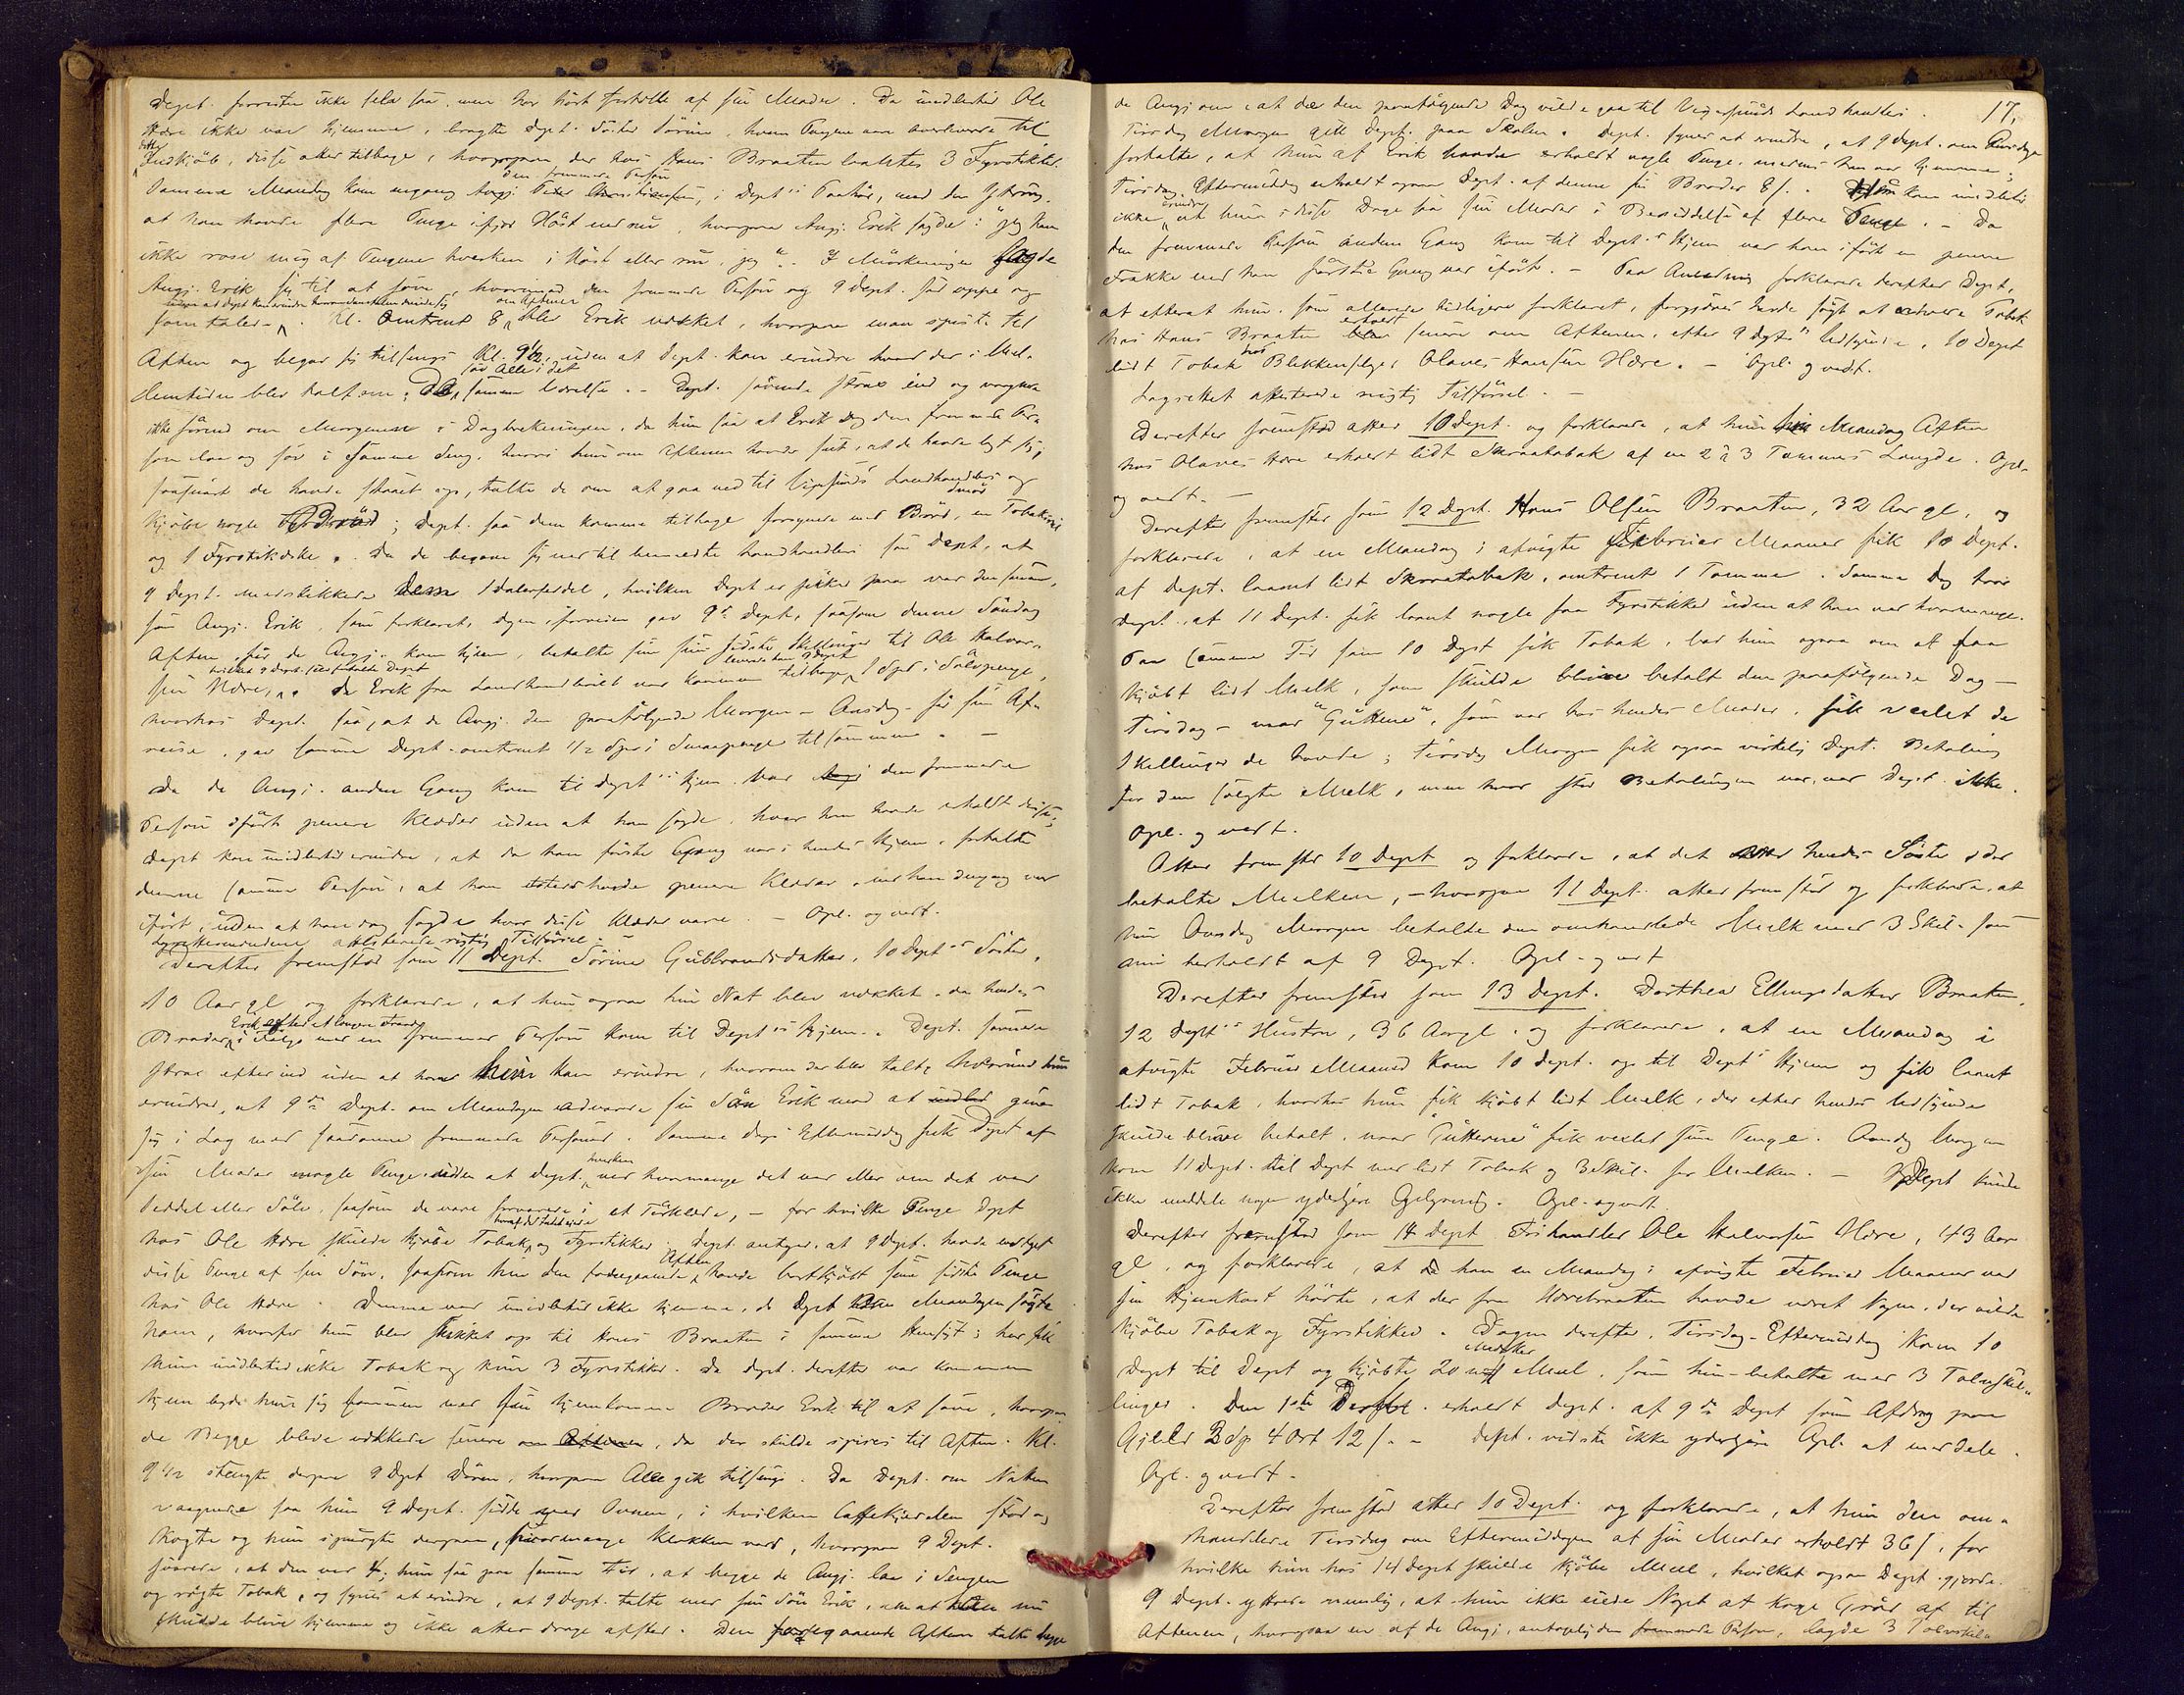 Dept. forresten ikke selv saa, men har hørt fortælle af sin Moder. Da imidlertid Ole
Høre ikke var hjemme, bragte Dept. Søster Sørine, hvem Pengene var overleverede til
Indkjøb, disse atter tilbage, hvorpaa der hos Hans Braaten laantes 3 Fyrstikker.
den fremmede Person
Samme Mandag kom engang i Dept.s Paahør, med den Yttring,
at han havde flere Penge ifjor Høst end nu, hvorpaa Ang. Erik sagde: "jeg kan
ikke rose mig af Pengene hverken i Høst eller nu, jeg". I Mørkningen lagde
Ang. Erik sig til at sove, hvorimod den fremmede Person og 9 Dept. sad oppe og
om Aftenen
samtalede. Kl. omtrent 8 blev Erik vækket, hvorpaa man spiste til
Aften og begav sig tilsengs Kl. 9½, uden at Dept. kan erindre hvad der i Mel-
sov Alle i det
lemtiden blev talt om; samme Værelse. - Dept. sovnede strax ind og vaagnede
ikke førend om Morgenen i Dagbrækningen, da hun saa at Erik og den fremmede Per-
son laa og sov i samme Seng, hvori hun om Aftenen havde seet, at de havde lagt sig;
saasnart de havde staaet op, talte de om at gaa ned til Vigersunds Landhandleri og
Smør
kjøbe nogle; Dept. saa dem komme tilbage forsynede med Brød, en Tobaks
og 1 Fyrstikæske. Da de begave sig ned til bemeldte Landhandleri saa Dept., at
9 Dept. medskikkede dem 1 Dalerseddel, hvilken Dept. er sikker paa var den samme,
som Ang. Erik, som forklaret, Dagen iforveien gav 9de Dept., saasom denne Søndag
Aften, før de Ang. kom hjem, betalte sin sidste Skillinger til Ole Halvor-
hvilket 9 Dept. selv fortalte Dept.
sen Høre. Da Erik fra Landhandleriet var kommen tilbage 1 Spd. i Sølvpenge,
hvorhos Dept. saa, at de Ang. den paafølgende Morgen - Onsdag - før sin Af-
reise, gav samme Dept. omtrent ½ Spd. i Smaapenge tilsammen. -
Da de Ang. anden Gang kom til Dept.s Hjem var den fremmede
Person iført penere Klæder uden at han sagde, hvor han havde erholdt disse;
Dept. kan imidlertid erindre, at da han første Gang var i hendes Hjem, fortalte
denne samme Person, at han havde penere Klæder, end han dengang var
iført, uden at han dog sagde hvor disse Klæder vare. - Opl. og vedt.
Lagrettemændene attesterede rigtig Tilførsel. -
Derefter fremstod som 11 Dept. Sørine Gulbrandsdatter, 10 Dept.s Søster,
10 Aar gl. og forklarede, at hun ogsaa hin Nat blev vækket, da hendes
Erik
Broder i Følge med en fremmed Person kom til Dept.s Hjem. Dept. sovnede
strax efter ind uden at hun kan erindre, hvorom der blev talt, hvorimod hun
erindrer, at 9de Dept. om Mandagen advarede sin Søn Erik mod at give
sig i Lag med saadanne fremmede Personer. Samme Dags Eftermiddag fik Dept. af
hverken
sin Moder nogle Penge uden at Dept. ved hvormange det var eller om det var
Seddel eller Sølv, saasom de vare forvarede i et Tørklæde, - for hvilke Penge Dept.
hos Ole Høre skulde kjøbe Tobak og Fyrstikker. Dept. antager, at 9 Dept. havde modtaget
Aften
disse Penge af sin Søn, saasom hun den foregaaende havde bortkjøbt sine sidste Penge
hos Ole Høre. Denne var imidlertid ikke hjemme, da Dept. Mandagen søgte
ham, hvorfor hun blev skikket op til Hans Braaten i samme Hensigt; her fik
hun imidlertid ikke Tobak og kun 3 Fyrstikker. Da Dept. derefter var kommen
hjem lagde hun sig sammen med sin hjemkomne Broder Erik til at sove, hvorpaa
de Begge bleve vækkede senere om Aftenen, da der skulde spises til Aften. Kl.
9½ stængte derpaa 9 Dept. Døren, hvorpaa Alle gik tilsengs. Da Dept. om Natten
vaagnede saa hun 9 Dept. sidde ved Ovnen, i hvilken Caffekjedelen stod og
kogte og hun spurgte derpaa, hvormange Klokken var, hvorpaa 9 Dept.
svarede, at den var 4; hun saa paa samme Tid, at begge de Ang. laa i Sengen
og røgte Tobak, og synes at erindre, at 9 Dept. talte med sin Søn Erik, om at han nu
skulde blive hjemme og ikke atter drage afsted. Den foregaaende Aften talte begge
17.
de Ang. om, at de den paafølgende Dag vilde gaa til Vigersunds Landhandleri.
Tirsdag Morgen gik Dept. paa Skolen. Dept. synes at erindre, at 9 Dept. om Onsdagen
fortalte, at hun af Erik havde erholdt nogle Penge, medens han var hjemme;
Tirsdag Eftermiddag erholdt ogsaa Dept. af denne sin Broder 8 s. Hun kan imidlertid
erindre
ikke, at hun i disse Dage saa sin Moder i Besiddelse af flere Penge. - Da
den fremmede Person anden Gang kom til Dept.s Hjem var han iført en penere
Frakke end han første Gang var iført. - Paa Anledning forklarede derefter Dept.,
at efterat hun, som allerede tidligere forklaret, forgjæves havde søgt at erhverve Tobak
erholdt
hos Hans Braaten senere om Aftenen, efter 9 Dept.s Udsigende, 10 Dept.
hos
lidt Tobak Blikkenslager Olaves Hansen Høre. - Opl. og vedt.
Lagrettet attesterede rigtig Tilførsel. -
Derefter fremstod atter 10 Dept. og forklarede, at hun hin Mandag Aften
hos Olaves Høre erholdt lidt Skraatobak af en 2 à 3 Tommers Længde. Opl.
og vedt. -
Derefter fremstod som 12 Dept. Hans Olsen Braaten, 32 Aar gl., og
forklarede, at en Mandag i afvigte Februar Maaned fik 10 Dept.
af Dept. laant lidt Skraatobak, omtrent 1 Tomme. Samme Dag tror
Dept., at 11 Dept. fik laant nogle faa Fyrstikker uden at han ved hvormange.
Paa samme Tid som 10 Dept. fik Tobak, bad hun ogsaa om at faa
kjøbt lidt Melk, som skulde blive betalt den paafølgende Dag -
Tirsdag - naar "Gutterne", som var hos hendes Moder, fik vexlet de
Skillinger de havde; Tirsdag Morgen fik ogsaa virkelig Dept. Betaling
for den solgte Melk, men hvor stor Betalingen var, ved Dept. ikke.
Opl. og vedt.
Atter fremstod 10 Dept. og forklarede, at det var hendes Søster, der
betalte Melken, - hvorpaa 11 Dept. atter fremstod og forklarede, at
hun Onsdag Morgen betalte den omhandlede Melk med 3 Skil. som
erholdt af 9 Dept. Opl. og vedt.
Derefter fremstod som 13 Dept. Dorthea Ellingsdatter Braaten,
12 Dept.s Hustru, 36 Aar gl. og forklarede, at en Mandag i
afvigte Februar Maaned kom 10 Dept. op til Dept.s Hjem og fik laant
lidt Tobak, hvorhos hun fik kjøbt lidt Melk, der efter hendes Udsigende
skulde blive betalt, naar "Gutterne" fik vexlet sine Penge. Onsdag Morgen
kom 11 Dept. til Dept. med lidt Tobak og 3 Skil. for Melken. - Dept. kunde
ikke meddele nogen yderligere Oplysning. Opl. og vedt.
Derefter fremstod som 14 Dept. Ole Halvorsen Høre, 43 Aar
gl., og forklarede, at da han en Mandag i afvigte Februar Maaned ved
sin Hjemkomst hørte, at der fra Hørebraaten havde været Nogen, der vilde
kjøbe Tobak og Fyrstikker. Dagen derefter, Tirsdag Eftermiddag kom 10
Dept. til Dept. og kjøbte 20 Meel, som hun betalte med 3 Tolvskil-
linger. Den 1ste erholdt Dept. af 9de Dept. som Afdrag paa
Gjæld 2 Sp 4 Ort 12 s. - Dept. vidste ikke yderligere Opl. at meddele.
Opl. og vedt. -
Derefter fremstod atter 10 Dept. og forklarede, at hun den om-
handlede Tirsdag om Eftermiddagen af sin Moder erholdt 36 s, for
hvilke hun hos 14 Dept. skulde kjøbe Meel, hvilket ogsaa Dept. gjorde.
9 Dept. yttrede nemlig, at hun ikke eiede Noget at koge Grød af til
Aftenen, hvorpaa en af de Ang., antagelig den fremmede Person, lagde 3 Tolvskil-